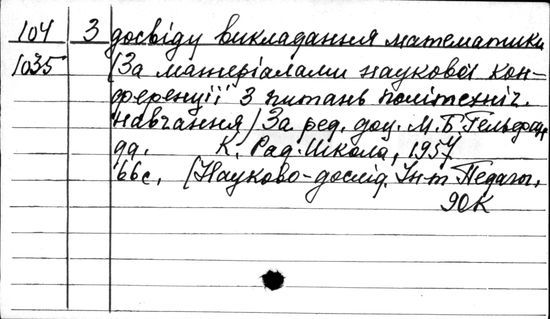 104 З досвіду викладання математики
1035 /За матеріалами наукової кон-
ференції з питань політехніч.
навчання/ За ред. доц. М.Б. Гельфан-
да. К. Рад. школа, 1957
66с. /Науково-дослід. Інт Педагог.
90К